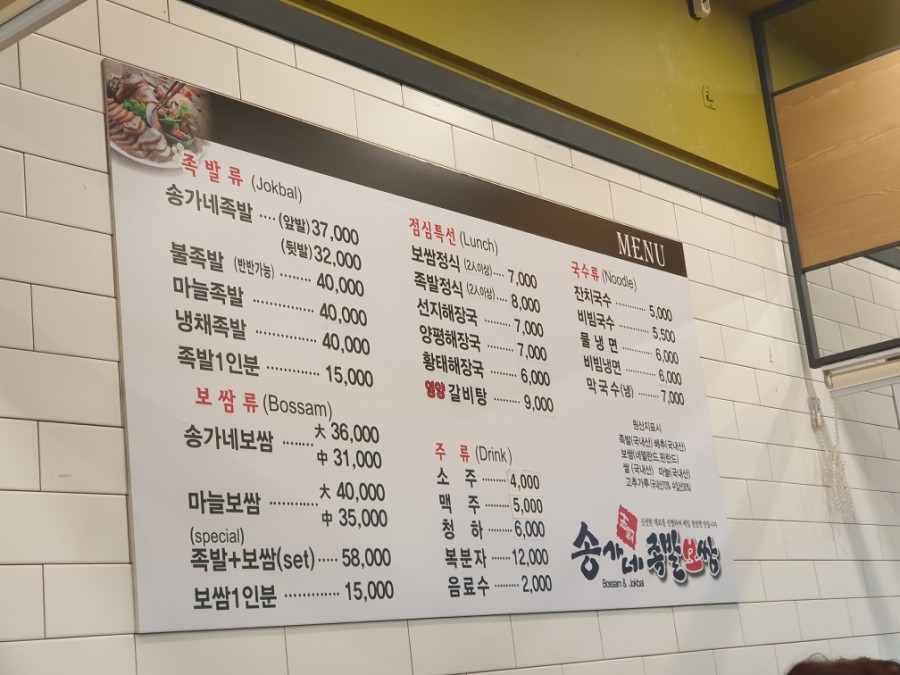 MENU
족발류 (Jokbal)
송가네족발 .... (앞발) 37,000
(뒷발) 32,000
불족발 (반반가능) ....... 40,000
마늘족발 ............. 40,000
냉채족발 ............. 40,000
족발1인분 ........... 15,000
보쌈류 (Bossam)
송가네보쌈 ........ 大 36,000
中 31,000
마늘보쌈 ........... 大 40,000
中 35,000
(special)
족발+보쌈(set) ..... 58,000
보쌈1인분 ............. 15,000
점심특선 (Lunch)
보쌈정식 (2人이상) .... 7,000
족발정식 (2人이상) ... 8,000
선지해장국 ........ 7,000
양평해장국 ......... 7,000
황태해장국 ......... 6,000
영양 갈비탕 ......... 9,000
주류 (Drink)
소주 ........ 4,000
맥주 ........ 5,000
청하 ........ 6,000
복분자 ........ 12,000
음료수 ........ 2,000
국수류 (Noodle)
잔치국수 .......... 5,000
비빔국수 .......... 5,500
물냉면 .......... 6,000
비빔냉면 .......... 6,000
막국수(냉) ........ 7,000
원산지표시
족발(국내산) 배추(국내산)
보쌈(네델란드 핀란드)
쌀 (국내산) 마늘(국내산)
고추가루
송가네 족발보쌈
Bossam & Jokbal